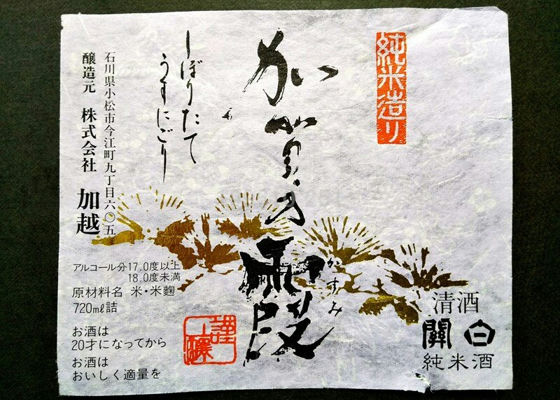 純米造り
加賀の霞
かすみ
しぼりたて
うすにごり
石川県小松市今江町九丁目六〇五
醸造元 株式会社 加越
アルコール分17.0度以上
18.0度未満
原材料名 米・米麹
720mℓ詰
お酒は
20才になってから
お酒は
おいしく適量を
謹醸
清酒
關白
純米酒